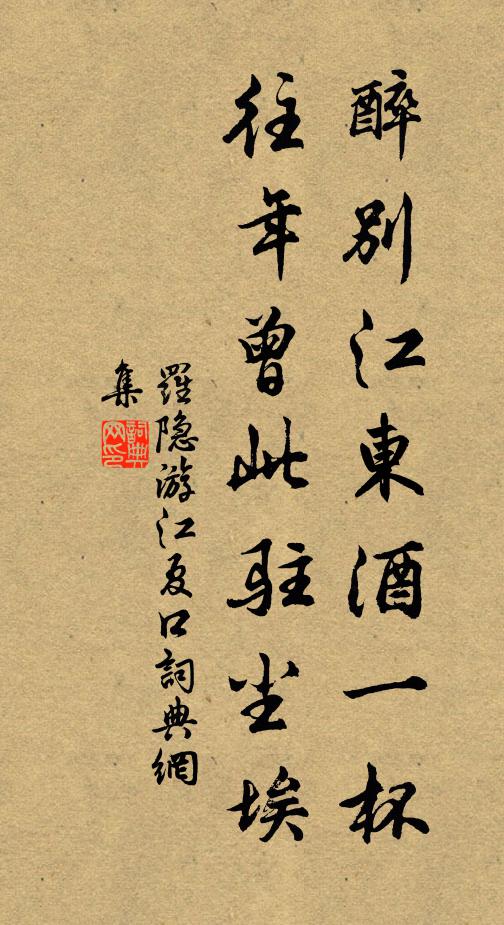 醉别江東酒一杯
往年曾此駐尘埃
羅隐游江夏口詞典網
集
詞典网印